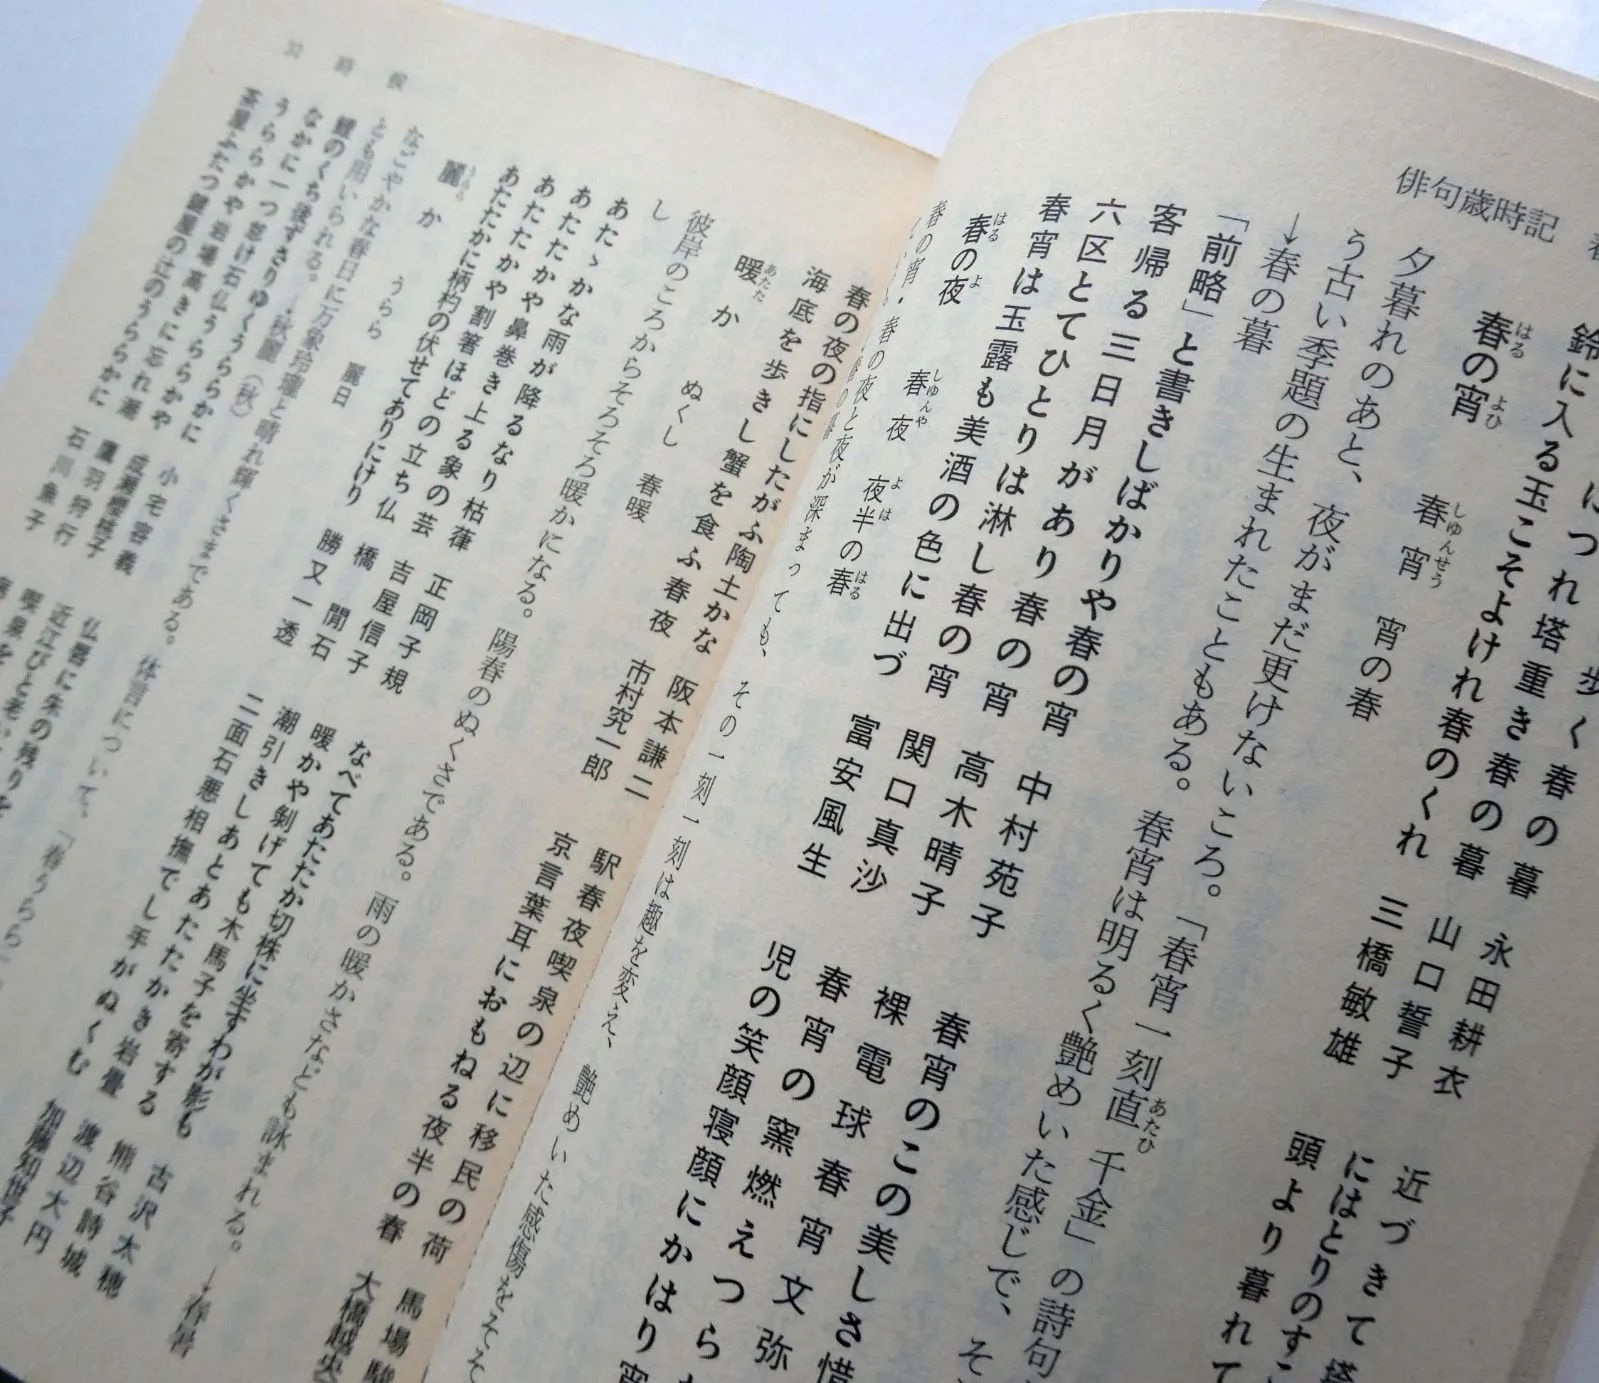 俳句歳時記
につれ塔重き春の暮 永田耕衣
鈴に入る玉こそよけれ春のくれ 三橋敏雄
歩く春の暮 山口誓子
近づきて塔
にはとりのすこ
頭より暮れて
春の宵 春宵 宵の春
はる よひ しゆんせう
夕暮れのあと、夜がまだ更けないころ。「春宵一刻直千金」の詩句
あたひ
う古い季題の生まれたこともある。春宵は明るく艶めいた感じで、そ
→春の暮
「前略」と書きしばかりや春の宵 中村苑子
客帰る三日月があり春の宵 高木晴子
六区とてひとりは淋し春の宵 関口真沙
春宵は玉露も美酒の色に出づ 富安風生
春宵のこの美しさ惜
裸電球春宵文弥
春宵の窯燃えつら
児の笑顔寝顔にかはり宵
春の夜 春夜 夜半の春
はる よ しゆんや よは はる
春の宵・春の夜と夜が深まっても、その一刻一刻は趣を変え、艶めいた感傷をそそ
春の夜の指にしたがふ陶土かな 阪本謙二
海底を歩きし蟹を食ふ春夜 市村究一郎
駅春夜喫泉の辺に移民の荷 馬場駿
京言葉耳におもねる夜半の春 大橋越央
暖か ぬくし 春暖
あたた
彼岸のころからそろそろ暖かになる。陽春のぬくさである。雨の暖かさなども詠まれる。→春暑
し
あたゝかな雨が降るなり枯葎 正岡子規
あたたかや鼻巻き上る象の芸 吉屋信子
あたたかや割箸ほどの立ち仏 橋閒石
あたたかに柄杓の伏せてありにけり 勝又一透
なべてあたたか切株に坐すわが影も 古沢太穂
暖かや剝げても木馬子を寄する 熊谷詩城
潮引きしあとあたたかき岩畳 渡辺大円
二面石悪相撫でし手がぬくむ 加藤知世子
麗か うらら 麗日
うらら
なごやかな春日に万象玲瓏と晴れ輝くさまである。体言について、「春うらら
とも用いられる。→秋麗(秋)
鯉のくち後ずさりゆくうららかに 小宅容義
なかに一つ怠け石仏うららかや 成瀬櫻桃子
うららかや岩場高きに忘れ潮 鷹羽狩行
茶屋ふたつ鍵屋の辻のうららかに 石川魚子
仏唇に朱の残りを
近江びと老い
喫泉を
時候
31